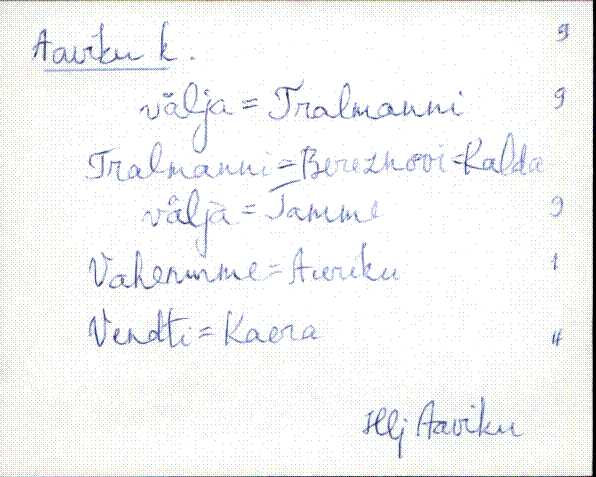 Aaviku k. 9
välja = Tralmanni 9
Tralmanni = Berezhovi = Kalda
välja = Tamme 9
Vahenurme = Aaviku 1
Vendti = Kaera 4
Hlj Aaviku